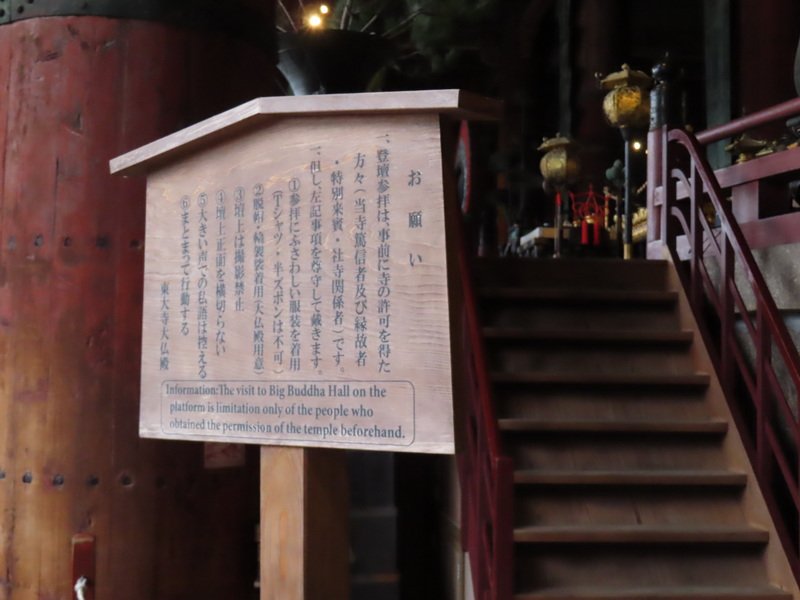 お願い
一、登壇参拝は、事前に寺の許可を得た
方々(当寺篤信者及び縁故者
・特別来賓・社寺関係者)です。
一、但し、左記事項を尊守して戴きます。
①参拝にふさわしい服装を着用
(Tシャツ・半ズボンは不可)
②脱帽・輪袈裟着用(大仏殿用意)
③壇上は撮影禁止
④壇上正面を横切らない
⑤大きい声での私語は控える
⑥まとまって行動する
東大寺大仏殿
Information:The visit to Big Buddha Hall on the
platform is limitation only of the people who
obtained the permission of the temple beforehand.